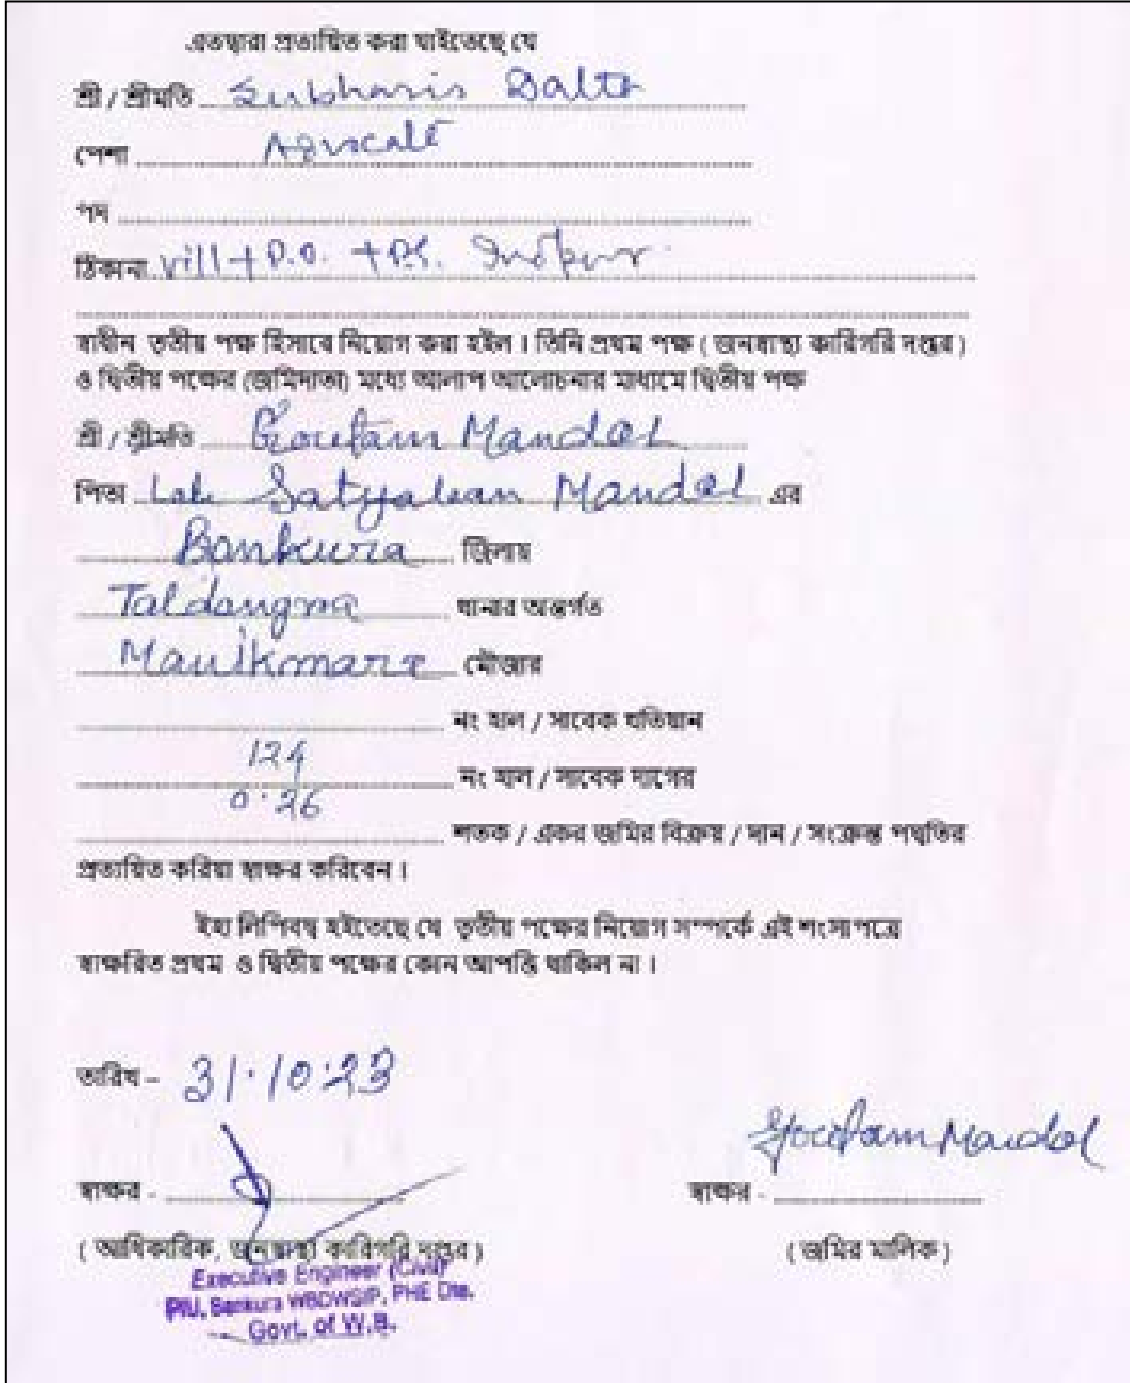 এতদ্বারা প্রত্যয়িত করা যাইতেছে যে
শ্রী / শ্রীমতি Subhasis Dalta
পেশা Advocate
পদ
ঠিকানা vill + P.O. + P.S. Indpur
স্বাধীন তৃতীয় পক্ষ হিসাবে নিয়োগ করা হইল । তিনি প্রথম পক্ষ ( জনস্বাস্থ্য কারিগরি দপ্তর )
ও দ্বিতীয় পক্ষের (জমিদাতা) মধ্যে আলাপ আলোচনার মাধ্যমে দ্বিতীয় পক্ষ
শ্রী / শ্রীমতি Goutam Mandal
পিতা Late Satyaban Mandal এর
Bankura জিলায়
Taldangra থানার অন্তর্গত
Manikmara মৌজার
নং হাল / সাবেক খতিয়ান
124 নং হাল / সাবেক দাগের
0.26 শতক / একর জমির বিক্রয় / দান / সংক্রান্ত পদ্ধতির
প্রত্যয়িত করিয়া স্বাক্ষর করিবেন ।
ইহা লিপিবদ্ধ হইতেছে যে তৃতীয় পক্ষের নিয়োগ সম্পর্কে এই শংসাপত্রে
স্বাক্ষরিত প্রথম ও দ্বিতীয় পক্ষের কোন আপত্তি থাকিল না ।
তারিখ - 31.10.23
Goutam Mandal
স্বাক্ষর -
স্বাক্ষর -
( আধিকারিক, জনস্বাস্থ্য কারিগরি দপ্তর )
( জমির মালিক )
Executive Engineer (Civil)
PIU, Bankura WBDWSIP, PHE Dte.
Govt. of W.B.